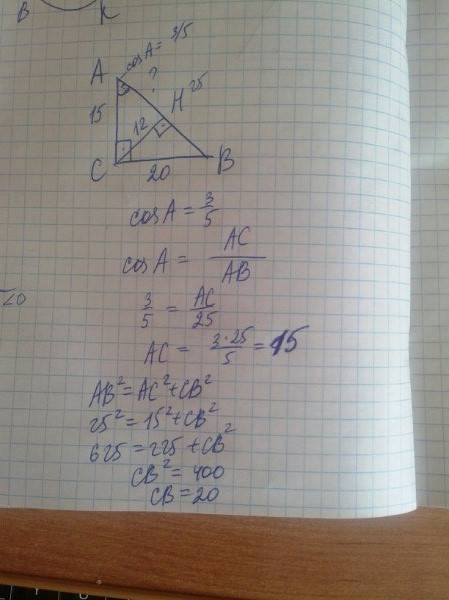 B K
cosA = 3/5
A
?
15
H 25
12
C
B
20
cosA = 3/5
cosA = AC/AB
3/5 = AC/25
AC = 3·25/5 = 15
AB² = AC² + CB²
25² = 15² + CB²
625 = 225 + CB²
CB² = 400
CB = 20